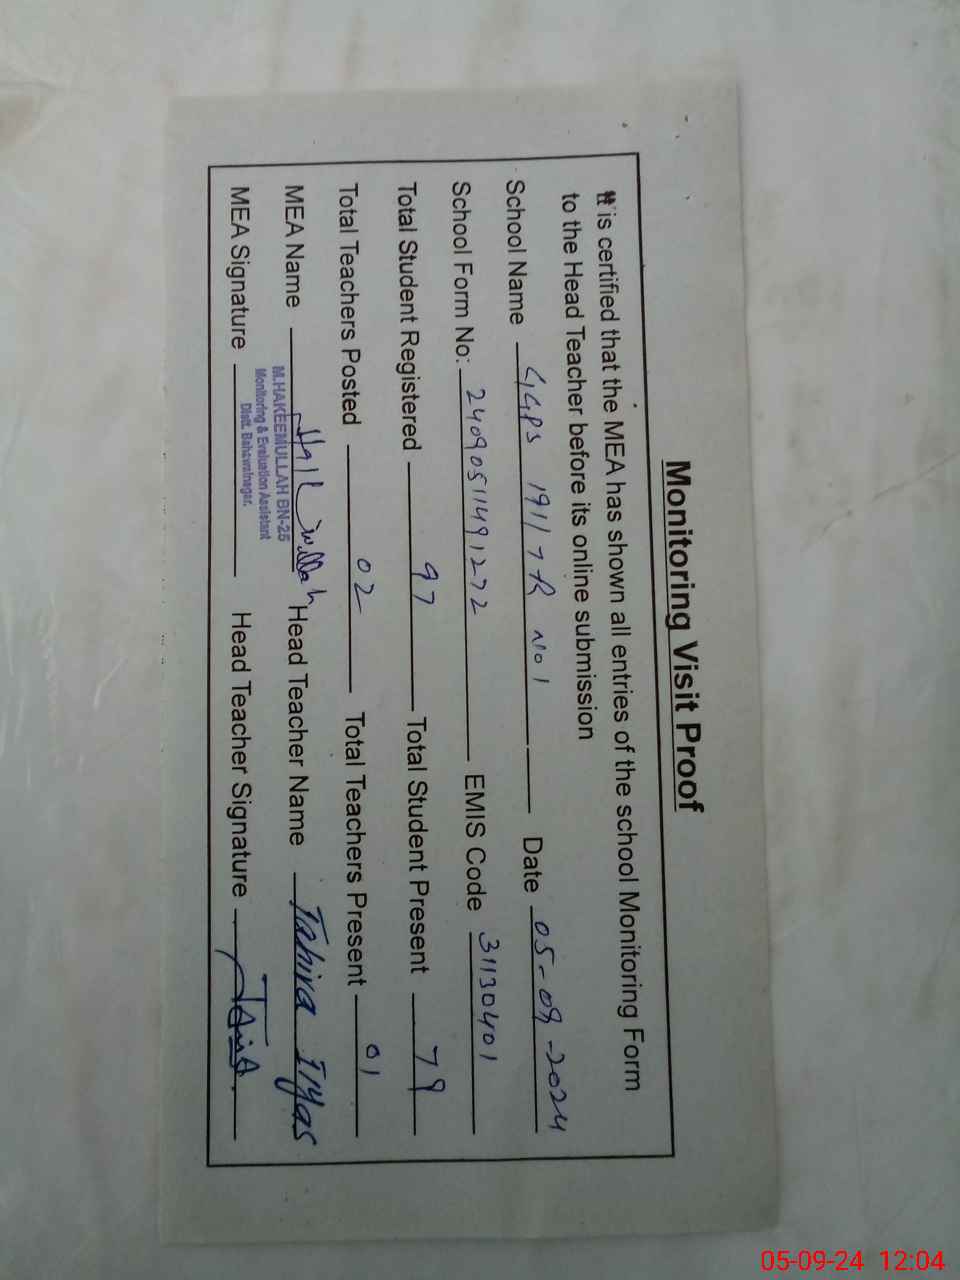 Monitoring Visit Proof
It is certified that the MEA has shown all entries of the school Monitoring Form
to the Head Teacher before its online submission
School Name GGPS 191/7-R No 1 Date 05-09-2024
School Form No: 24090511491272 EMIS Code 31130401
Total Student Registered 97 Total Student Present 79
Total Teachers Posted 02 Total Teachers Present 01
MEA Name Head Teacher Name Tahira Ilyas
M.HAKEEMULLAH BN-25
Monitoring & Evaluation Assistant
Distt. Bahawalnagar.
MEA Signature Head Teacher Signature
05-09-24 12:04